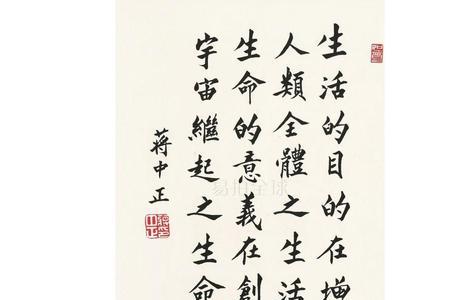 生活的目的在增
人類全體之生活
生命的意義在創
宇宙繼起之生命
蔣中正
易拍全球